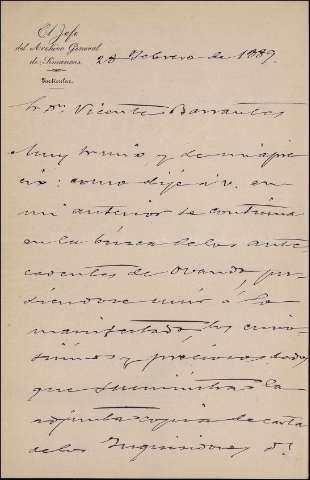 El Jefe
del Archivo General
de Simancas
Particular
28 Febrero de 1889.
Sr. Dn. Vicente Barrantes
Muy Sr. mio y de mi apre
cio: como dije á V. en
mi anterior se continúa
en la busca de los ante
cedentes de Ovando, pu
diendose unir á lo
manifestado los curio
sísimos y preciosos datos
que suministra la
adjunta copia de carta
de los Inquisidores